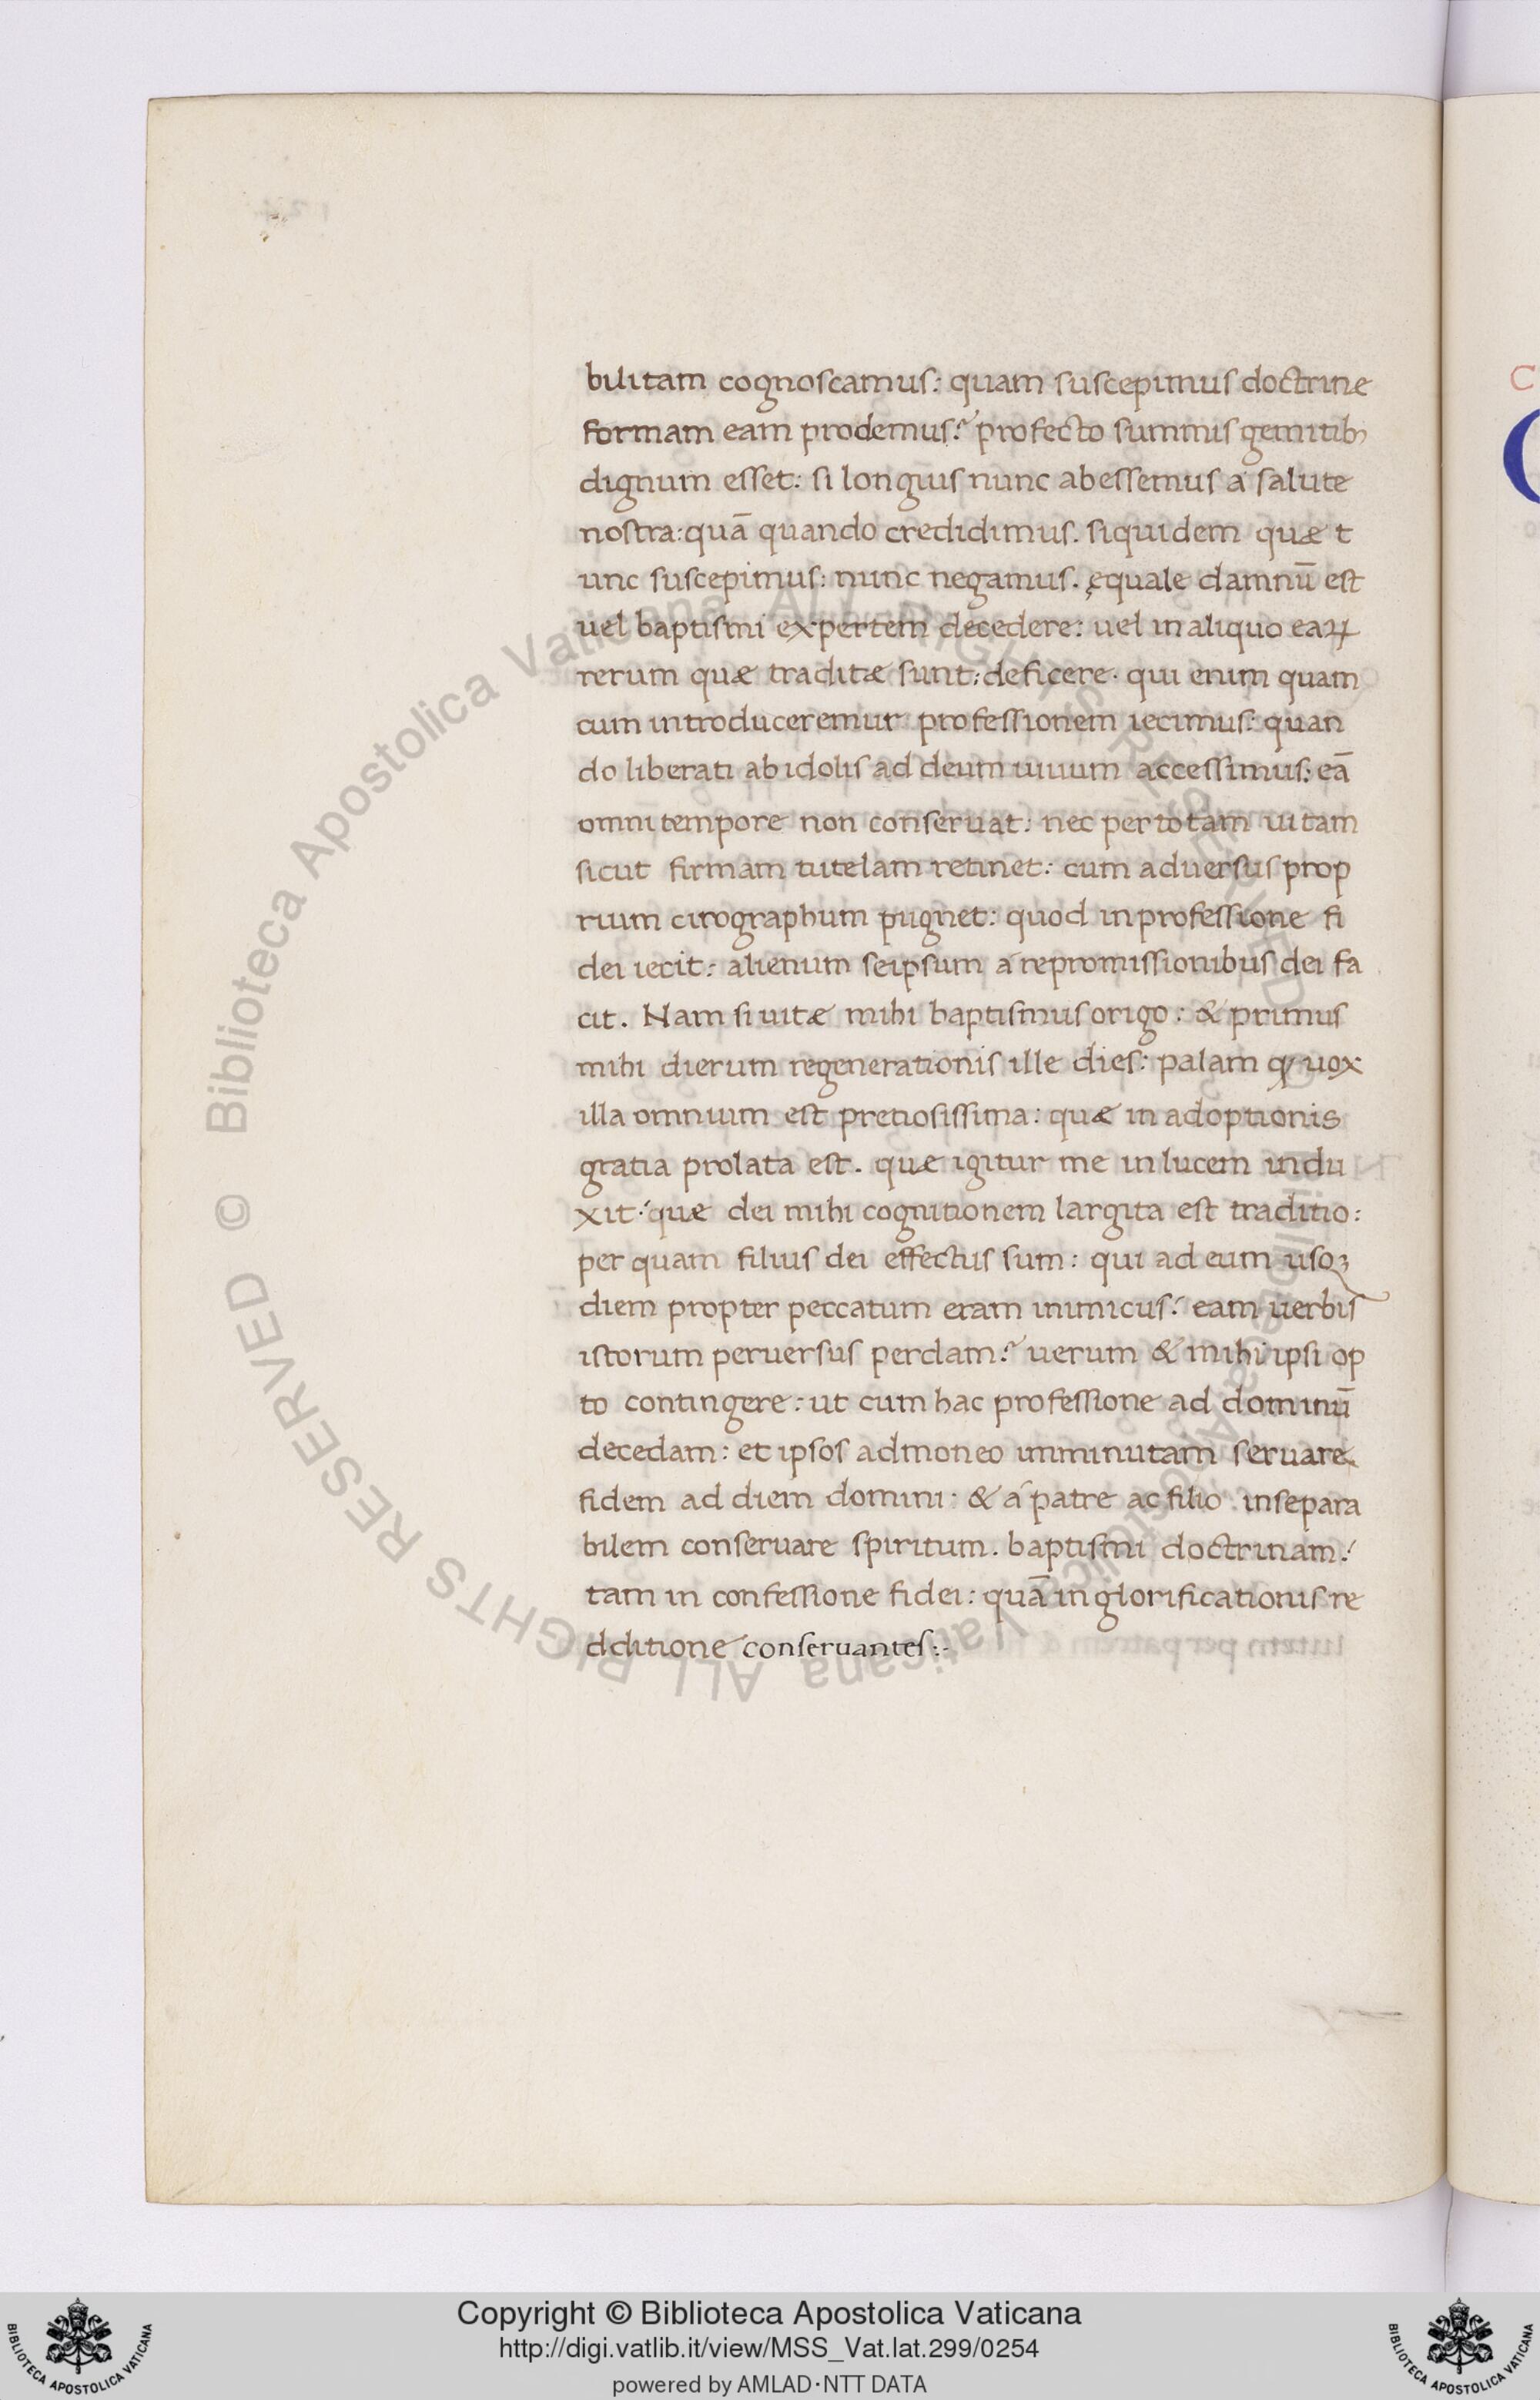 bilitam cognoscamus: quam suscepimus doctrine
formam eam prodemus? profecto summis gemitibꝫ
dignum esset: si longius nunc abessemus á salute
nostra: quā quando credidimus. siquidem quæ t
unc suscepimus: nunc negamus. ęquale damnū est
uel baptismi expertem decedere: uel in aliquo eaꝝ
rerum quæ traditæ sunt: deficere. qui enim quam
cum introduceremur professionem iecimus: quan
do liberati ab idolis ad deum uiuum accessimus: eā
omni tempore non conseruat: nec per totam uitam
sicut firmam tutelam retinet: cum aduersus prop
rium cirographum pugnet: quod in professione fi
dei iecit: alienum seipsum á repromissionibus dei fa
cit. Nam si uitæ mihi baptismus origo: & primus
mihi dierum regenerationis ille dies: palam ꝙ uox
illa omnium est pretiosissima: quæ in adoptionis
gratia prolata est. quæ igitur me in lucem indu
xit: quæ dei mihi cognitionem largita est traditio:
per quam filius dei effectus sum: qui ad eum usqꝫ
diem propter peccatum eram inimicus: eam uerbis
istorum peruersus perdam? uerum & mihi ipsi op
to contingere: ut cum hac professione ad dominū
decedam: et ipsos admoneo imminutam seruare
fidem ad diem domini: & á patre ac filio insepara
bilem conseruare spiritum. baptismi doctrinam:
tam in confessione fidei: quā in glorificationis re
dditione conseruantes:-
C
© Biblioteca Apostolica Vaticana ALL RIGHTS RESERVED
© Biblioteca Apostolica Vaticana ALL RIGHTS RESERVED
Copyright © Biblioteca Apostolica Vaticana
http://digi.vatlib.it/view/MSS_Vat.lat.299/0254
powered by AMLAD·NTT DATA
BIBLIOTECA APOSTOLICA VATICANA
BIBLIOTECA APOSTOLICA VATICANA